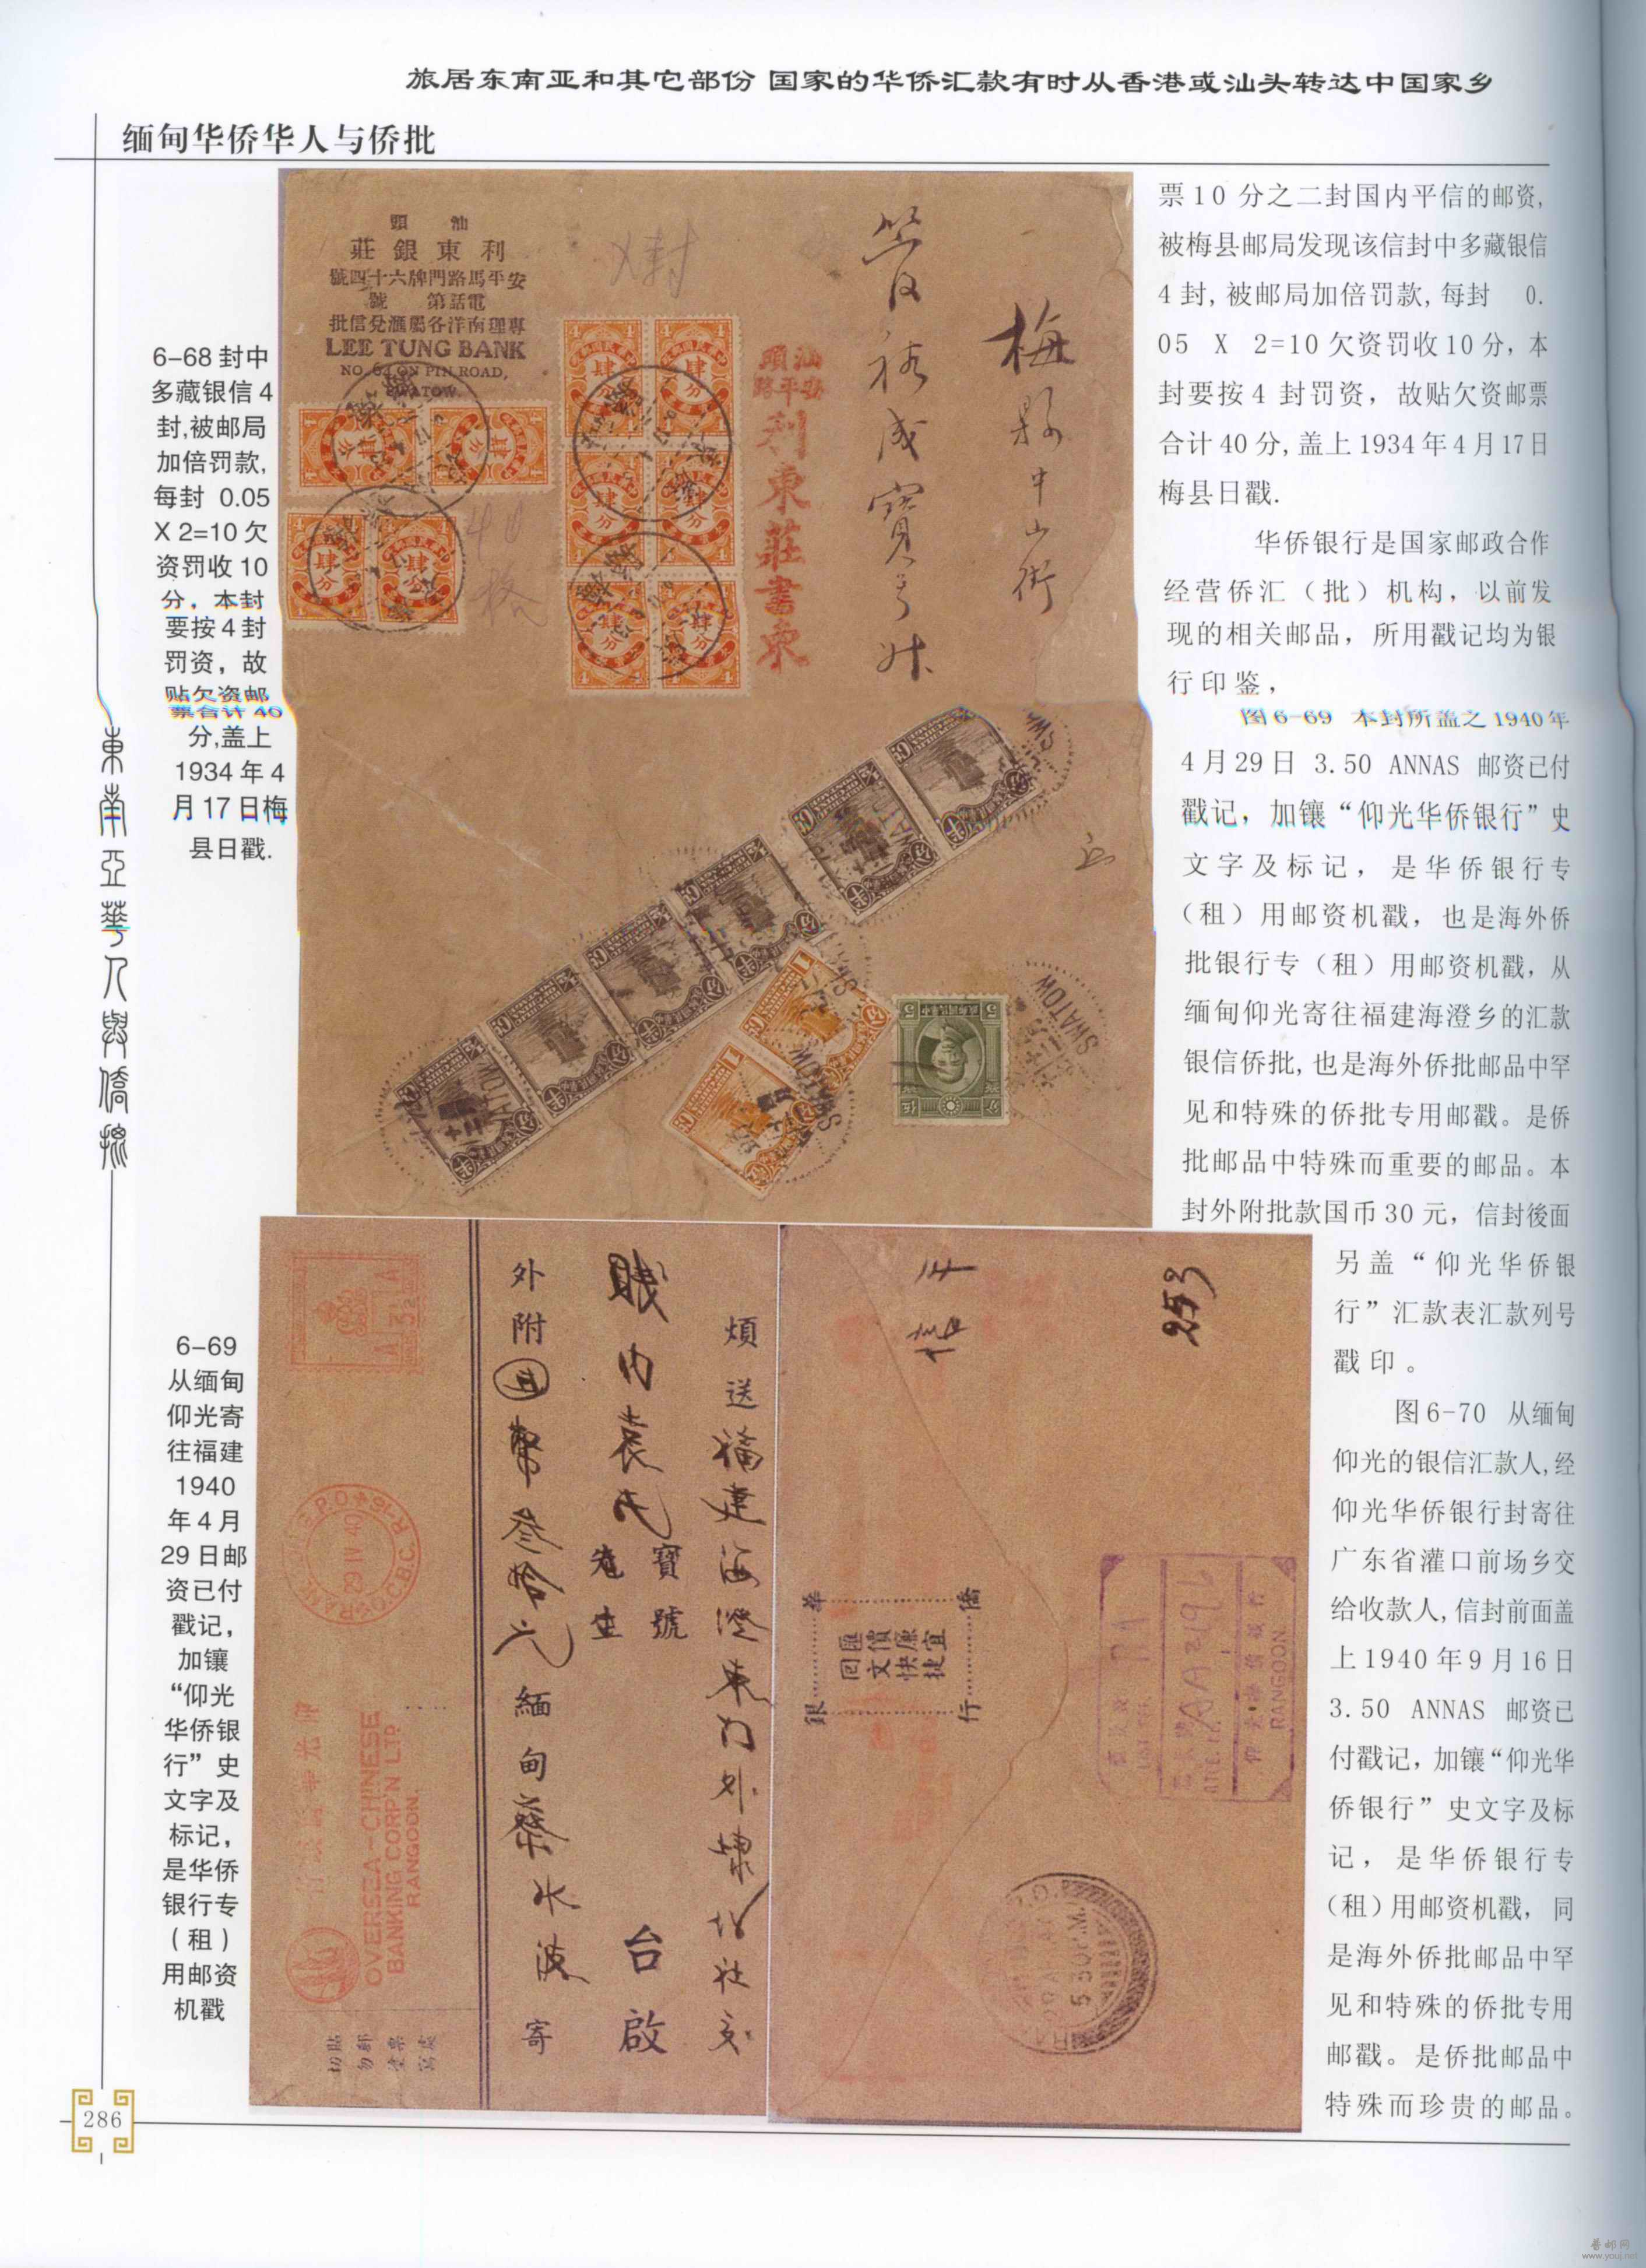 旅居东南亚和其它部份 国家的华侨汇款有时从香港或汕头转达中国家乡
缅甸华侨华人与侨批
6-68 封中
多藏银信 4
封,被邮局
加倍罚款,
每封 0.05
X 2=10 欠
资罚收 10
分，本封
要按 4 封
罚资，故
贴欠资邮
票合计 40
分,盖上
1934 年 4
月 17 日梅
县日戳.
東南亞華人與僑批
汕頭
利東銀莊
安平馬路門牌六十四號
電話第 號
專理南洋各屬滙兌信批
LEE TUNG BANK
NO. 64 ON PIN ROAD,
SWATOW.
汕頭
安平路
利東莊書柬
梅縣中山街
SWATOW
票 10 分之二封国内平信的邮资,
被梅县邮局发现该信封中多藏银信
4 封, 被邮局加倍罚款, 每封 0.
05 X 2=10 欠资罚收 10 分，本
封要按 4 封罚资，故贴欠资邮票
合计 40 分, 盖上 1934 年 4 月 17 日
梅县日戳.
华侨银行是国家邮政合作
经营侨汇（批）机构，以前发
现的相关邮品，所用戳记均为银
行印鉴，
图 6-69 本封所盖之 1940 年
4 月 29 日 3.50 ANNAS 邮资已付
戳记，加镶“仰光华侨银行”史
文字及标记，是华侨银行专
（租）用邮资机戳，也是海外侨
批银行专（租）用邮资机戳，从
缅甸仰光寄往福建海澄乡的汇款
银信侨批, 也是海外侨批邮品中罕
见和特殊的侨批专用邮戳。是侨
批邮品中特殊而重要的邮品。本
封外附批款国币 30 元，信封後面
另盖“仰光华侨银
行”汇款表汇款列号
戳印。
图 6-70 从缅甸
仰光的银信汇款人, 经
仰光华侨银行封寄往
广东省灌口前场乡交
给收款人, 信封前面盖
上 1940 年 9 月 16 日
3.50 ANNAS 邮资已
付戳记，加镶“仰光华
侨银行”史文字及标
记，是华侨银行专
（租）用邮资机戳，同
是海外侨批邮品中罕
见和特殊的侨批专用
邮戳。是侨批邮品中
特殊而珍贵的邮品。
6-69
从缅甸
仰光寄
往福建
1940
年 4 月
29 日邮
资已付
戳记，
加镶
“仰光
华侨银
行”史
文字及
标记，
是华侨
银行专
（租）
用邮资
机戳
煩送福建海澄東門外
內袁氏
寶號
先生
台啟
外附國幣叁拾元 緬甸蔡水波寄
29 IV 40
OVERSEA-CHINESE
BANKING CORP'N LTD.
RANGOON.
貼郵票處
切勿塗寫
253
華僑銀行
匯價廉宜
回文快捷
RANGOON
5.30P.M.
286
普邮网
www.youj.net